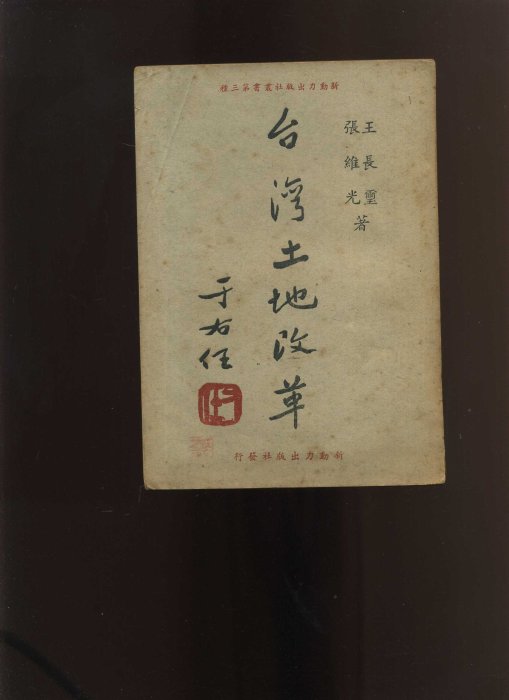 新動力出版社叢書第三種
王長璽
張維光
著
台灣土地改革
于右任
新動力出版社發行